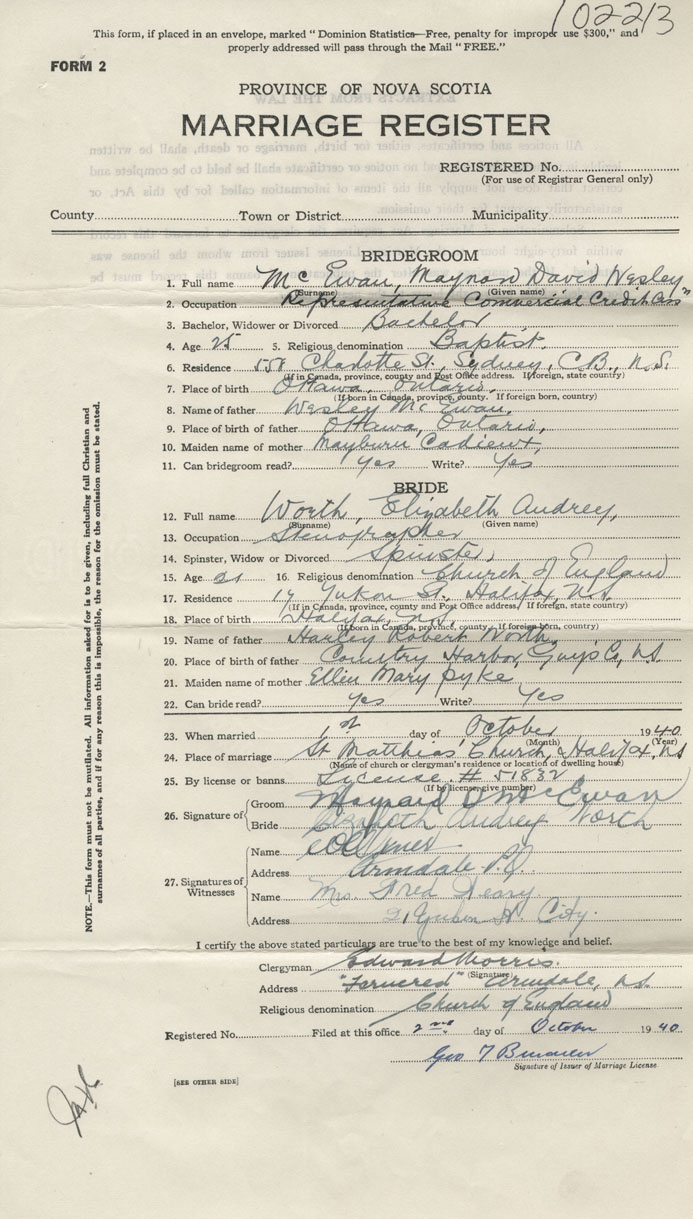 102213
This form, if placed in an envelope, marked "Dominion Statistics—Free, penalty for improper use $300," and
properly addressed will pass through the Mail "FREE."
FORM 2
PROVINCE OF NOVA SCOTIA
MARRIAGE REGISTER
REGISTERED No.
(For use of Registrar General only)
County Town or District Municipality
BRIDEGROOM
1. Full name McEwan, Maynard David Wesley
(Surname) (Given name)
2. Occupation "Representative Commercial Credit Cos"
3. Bachelor, Widower or Divorced Bachelor
4. Age 25 5. Religious denomination Baptist.
6. Residence 558 Charlotte St., Sydney, C.B., N.S.
(If in Canada, province, county and Post Office address. If foreign, state country)
7. Place of birth Ottawa, Ontario,
(If born in Canada, province, county. If foreign born, country)
8. Name of father Wesley McEwan,
9. Place of birth of father Ottawa, Ontario,
10. Maiden name of mother Mayburu Cadieux,
11. Can bridegroom read? Yes Write? Yes
BRIDE
12. Full name Worth, Elizabeth Audrey,
(Surname) (Given name)
13. Occupation Stenographer
14. Spinster, Widow or Divorced Spinster,
15. Age 21 16. Religious denomination Church of England
17. Residence 14 Yukon St., Halifax, N.S.
(If in Canada, province, county and Post Office address. If foreign, state country)
18. Place of birth Halifax, N.S.
(If born in Canada, province, county. If foreign born, country)
19. Name of father Harley Robert Worth,
20. Place of birth of father Country Harbor, Guys Co, N.S.
21. Maiden name of mother Ellen Mary Pyke
22. Can bride read? Yes Write? Yes
23. When married 1st day of October 1940
(Month) (Year)
24. Place of marriage St Matthias' Church, Halifax, N.S
(Name of church or clergyman's residence or location of dwelling house)
25. By license or banns License # 51832
(If by license, give number)
26. Signature of Groom Maynard D McEwan
Bride Elizabeth Audrey Worth
27. Signatures of Witnesses
Name
Address Armdale P.O.
Name Mrs. Fred
Address 21 Yukon St. City.
I certify the above stated particulars are true to the best of my knowledge and belief.
Clergyman Edward Morris.
(Signature)
Address Armdale, N.S.
Religious denomination Church of England
Registered No. Filed at this office 2nd day of October 1940
Geo
Signature of Issuer of Marriage License
[SEE OTHER SIDE]
NOTE.—This form must not be mutilated. All information asked for is to be given, including full Christian and
surnames of all parties, and if for any reason this is impossible, the reason for the omission must be stated.